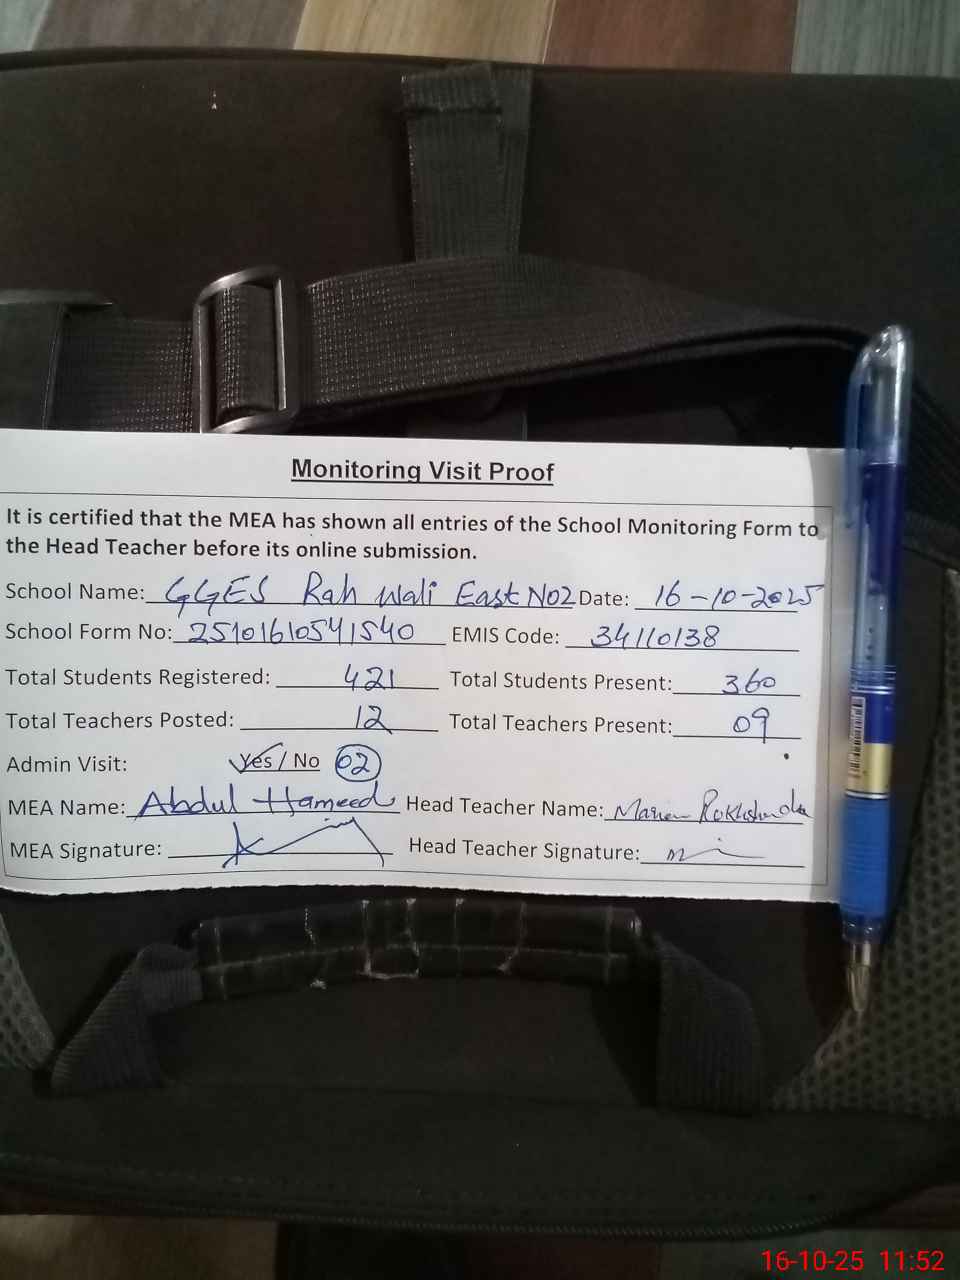 Monitoring Visit Proof
It is certified that the MEA has shown all entries of the School Monitoring Form to
the Head Teacher before its online submission.
School Name: GGES Rah Wali East No2 Date: 16-10-2025
School Form No: 2510161054 1540 EMIS Code: 34110138
Total Students Registered: 421 Total Students Present: 360
Total Teachers Posted: 12 Total Teachers Present: 09
Admin Visit: Yes / No 02
MEA Name: Abdul Hameed Head Teacher Name:
MEA Signature: Head Teacher Signature:
16-10-25 11:52